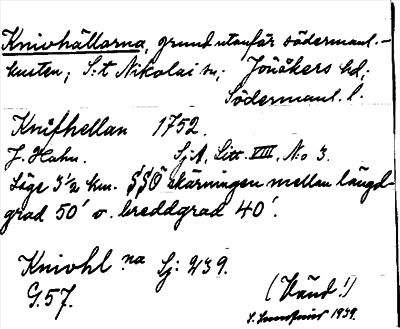 Knivhällarna, grund utanför södermanl.-
kusten; S:t Nikolai sn; Jönåkers hd;
Södermanl. l.
Knifhellan 1752.
J. Hahn. SjA, Litt. VIII, No 3.
Läge 3 1/2 km. SSÖ skärningen mellan längd-
grad 50' o. breddgrad 40'.
Knivhl na Sj: 239.
G. 57.
(Vänd!)
1939.